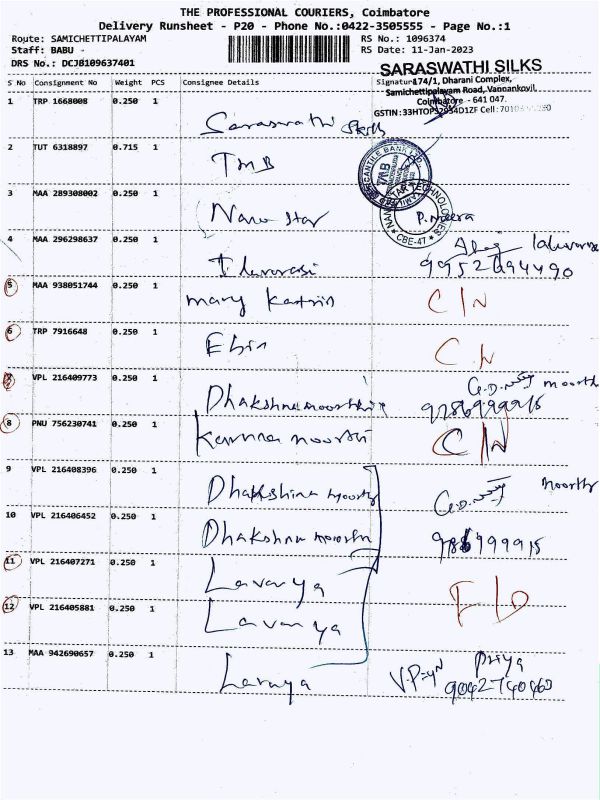 THE PROFESSIONAL COURIERS, Coimbatore
Delivery Runsheet - P20 - Phone No.:0422-3505555 - Page No.:1
Route: SAMICHETTIPALAYAM
RS No.: 1096374
Staff: BABU -
RS Date: 11-Jan-2023
DRS No.: DCJB109637401
SARASWATHI SILKS
S No Consignment No Weight PCS Consignee Details Signature
174/1, Dharani Complex,
Samichettipalayam Road, Vannankovil,
Coimbatore - 641 047.
1 TRP 1668008 0.250 1 Saraswathi Silks
2 TUT 6318897 0.715 1 TMB
3 MAA 289308002 0.250 1 Nano star P. Meera
CBE-47
4 MAA 296298637 0.250 1
9952694490
5 MAA 938051744 0.250 1 mary C/N
6 TRP 7916648 0.250 1 Ebin C/N
7 VPL 216409773 0.250 1 Dhakshnamoorthi G.D. moorth
8 PNU 756230741 0.250 1 C/N
9 VPL 216408396 0.250 1 Dhakshina moorthy G.D. Moorthy
10 VPL 216406452 0.250 1 Dhakshna moorthi
11 VPL 216407271 0.250 1 Lavanya F/D
12 VPL 216405881 0.250 1 Lavanya
13 MAA 942690657 0.250 1 Lavanya Priya
9042740460